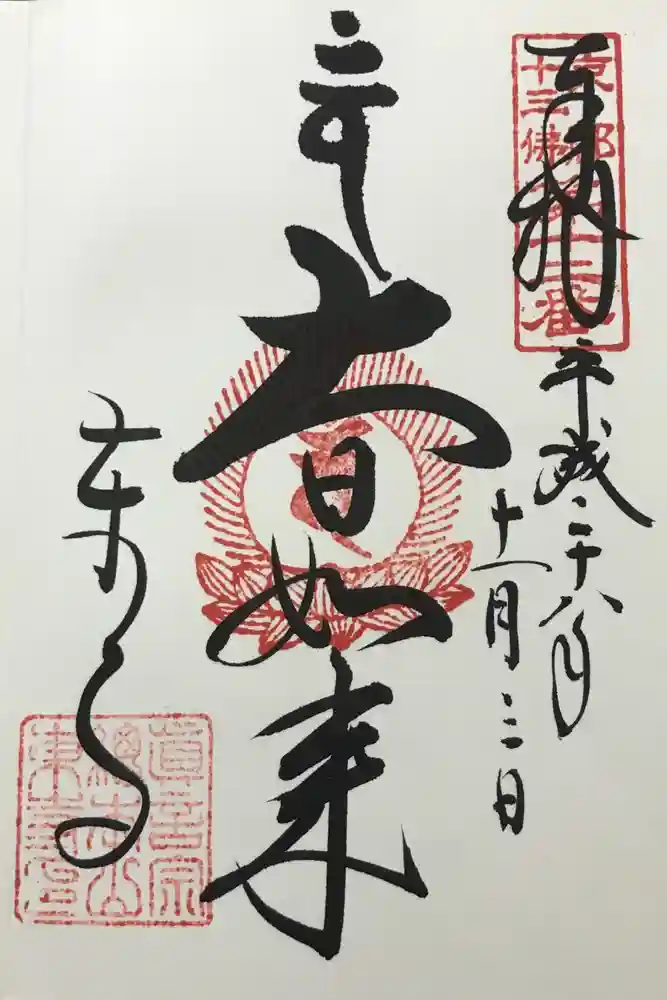 奉拝
京都
十三佛第十二番
平成二十八年
十一月三日
大日如来
東寺
眞言宗
總本山
東寺印